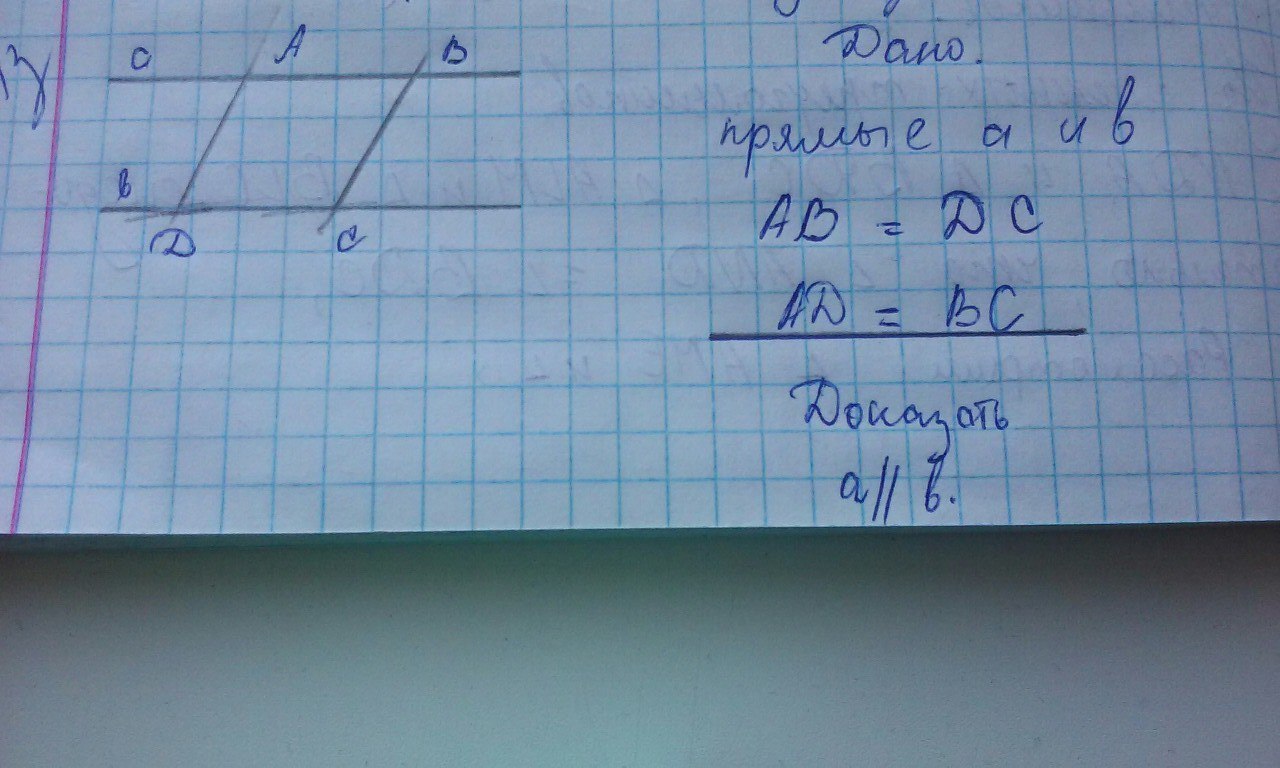 3)
a A B
в
D C
Дано.
прямые а и в
AB = DC
AD = BC
Доказать
а || в.